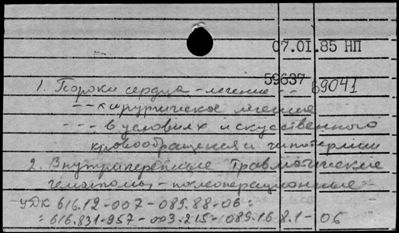 07.01.85 НП
59637 69041
1. Пороки сердца - лечение - -
- - хирургическое лечение
- - - в условиях искусственного
кровообращения и гипотермии
2. Внутричерепные травматические
гематомы, - послеоперационные -
УДК 616.12-007-089.88-06:
:616.831-957-003.215-1089.168.1-06